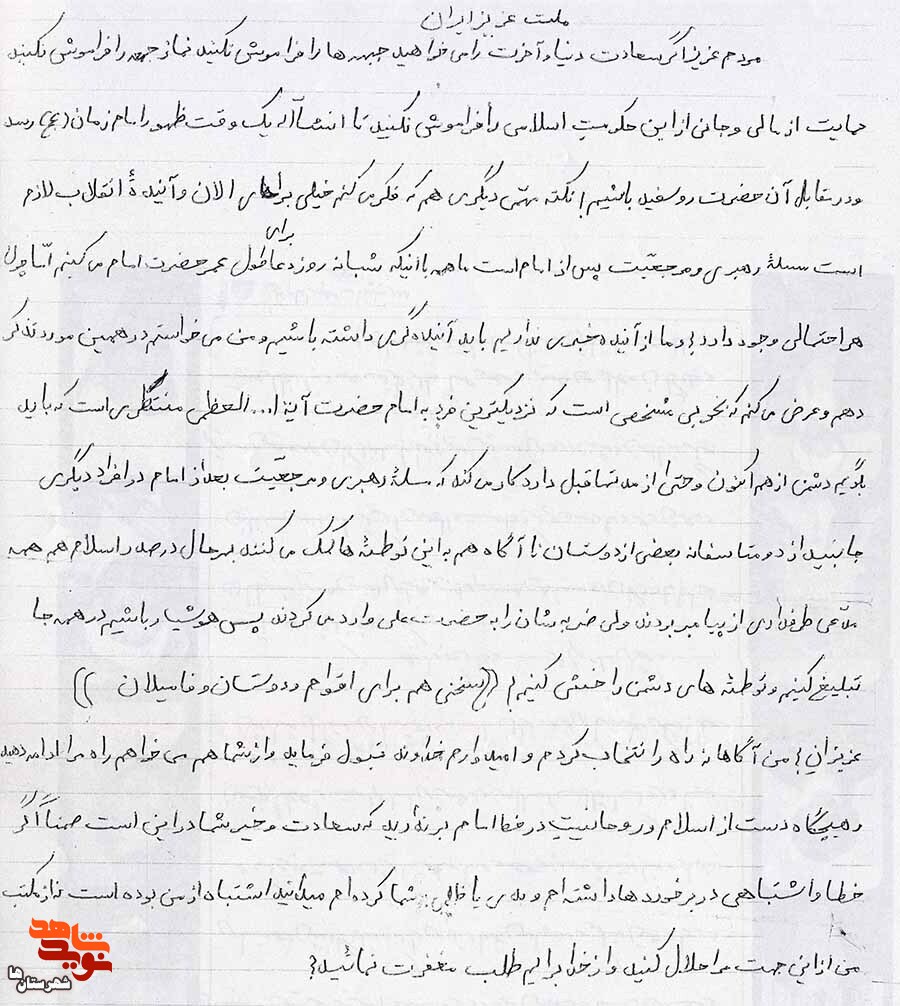 ملت عزیز ایران
مردم عزیز! اگر سعادت دنیا و آخرت را می خواهید جبهه ها را فراموش نکنید نماز جمعه را فراموش نکنید
حمایت از مالی و جانی از این حکومت اسلامی را فراموش نکنید تا انشاءاله یک وقت ظهور امام زمان (عج) رسد
و در مقابل آن حضرت روسفید باشیم! نکته مهمّی دیگری هم که فکر می کنم خیلی برای الان و آئیندهٔ انقلاب لازم
برای
است مسئلهٔ رهبری و مرجعیّت پس از امام است ما همه با آنیکه شبانه روز دعا طول عمر حضرت امام می کنیم امّا چون
هر احتمالی وجود دارد و ما از آئینده خبری نداریم باید آئینده نگری داشته باشیم و من می خواستم در همین مورد تذکر
دهم و عرض می کنم که بخوبی مشخص است که نزدیکترین فرد به امام حضرت آیة ا... العظمی منتظری است که باید
بگویم دشمن از هم اکنون و حتی از مدتها قبل دارد کار می کند که مسئلهٔ رهبری و مرجعیّت بعد از امام در افراد دیگری
جا بیندازد و متاسفانه بعضی از دوستان نا آگاه هم به این توطئهٔ ها کمک می کنند بهر حال در صدر اسلام هم همه
مدّعی طرفداری از پیامبر بودند ولی ضربه شان را به حضرت علی وارد می کردند پس هوشیار باشیم در همه جا
تبلیغ کنیم و توطئهٔ های دشمن را خنثی کنیم! ((سخنی هم برای اقوام و دوستان و فامیلان))
عزیزان! من آگاهانه راه را انتخاب کردم و امیدوارم خداوند قبول فرماید و از شما هم می خواهم راه مرا ادامه دهید
و هیچگاه دست از اسلام و روحانیت در خط امام برندارید که سعادت و خیر شما در این است ضمناً اگر
خطا و اشتباهی در برخوردها داشته ام و بدی با شما کرده ام میدانید اشتباه از من بوده است نه از مکتب
من از این جهت مرا حلال کنید و از خدا برایم طلب مغفرت نمائید!
شاهد
نوید
شهرستان ها